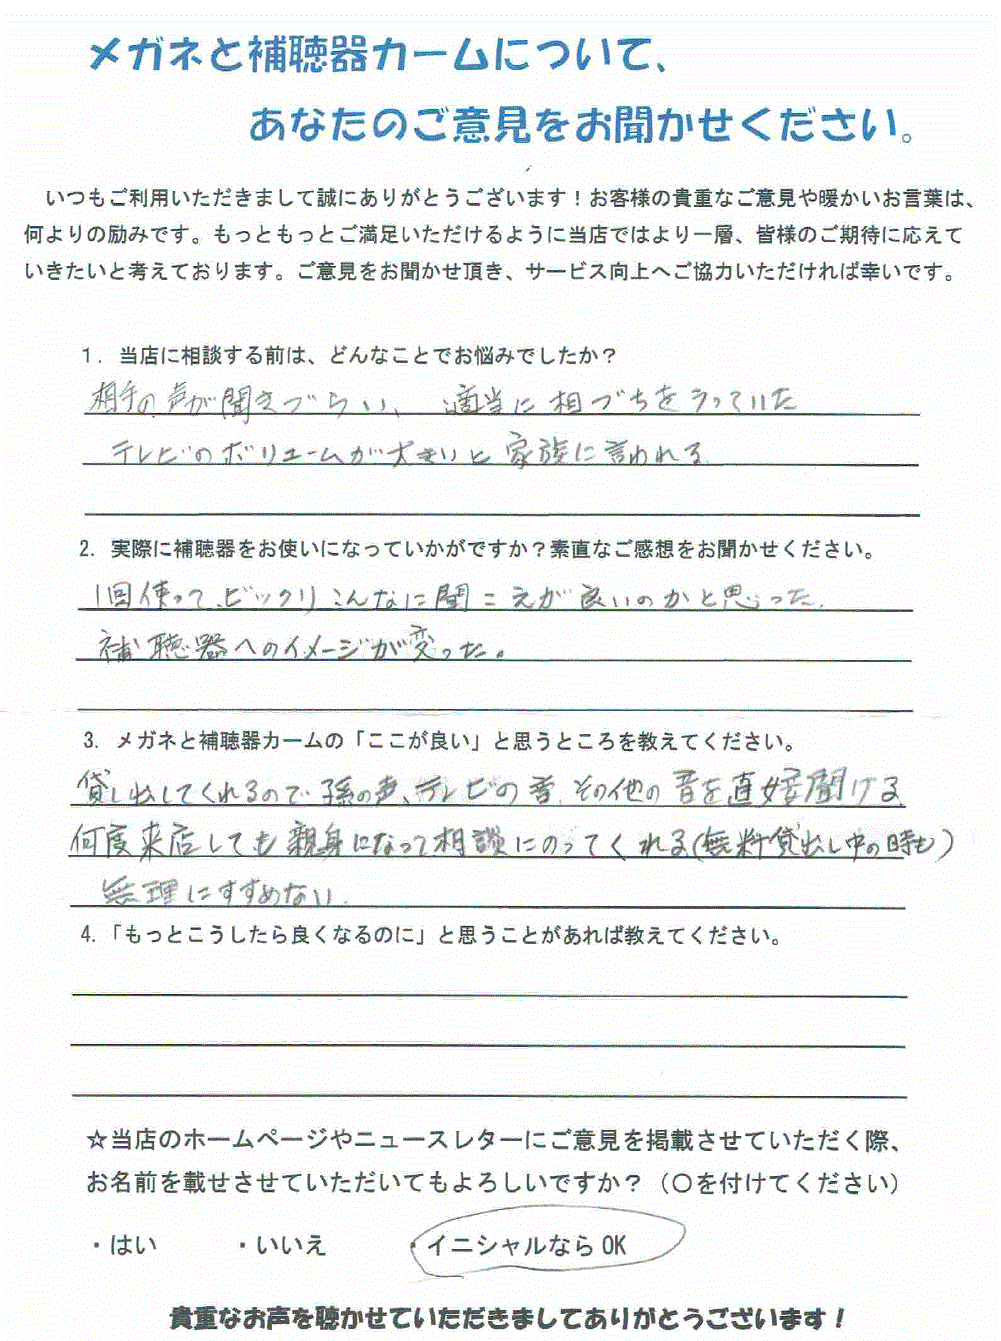 メガネと補聴器カームについて、
あなたのご意見をお聞かせください。
いつもご利用いただきまして誠にありがとうございます！お客様の貴重なご意見や暖かいお言葉は、
何よりの励みです。もっともっとご満足いただけるように当店ではより一層、皆様のご期待に応えて
いきたいと考えております。ご意見をお聞かせ頂き、サービス向上へご協力いただければ幸いです。
1. 当店に相談する前は、どんなことでお悩みでしたか？
相手の声が聞きづらい、適当に相づちをうっていた
テレビのボリュームが大きいと家族に言われる
2. 実際に補聴器をお使いになっていかがですか？素直なご感想をお聞かせください。
1回使って、ビックリこんなに聞こえが良いのかと思った.
補聴器へのイメージが変った。
3. メガネと補聴器カームの「ここが良い」と思うところを教えてください。
貸し出してくれるので孫の声、テレビの音、その他の音を直接聞ける
何度来店しても親身になって相談にのってくれる(無料貸出し中の時も)
無理にすすめない.
4.「もっとこうしたら良くなるのに」と思うことがあれば教えてください。
☆当店のホームページやニュースレターにご意見を掲載させていただく際、
お名前を載せさせていただいてもよろしいですか？（○を付けてください）
・はい ・いいえ ・イニシャルならOK
貴重なお声を聴かせていただきましてありがとうございます！